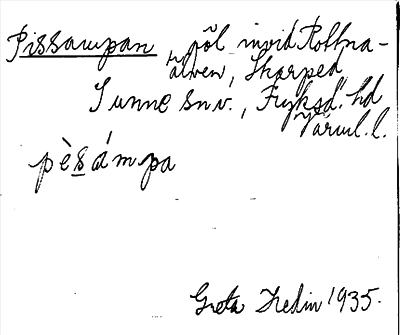 Pissampan, jöl invid Rottna-
älven, Skarped
Sunne sn v., Fryksd. hd
Värml. l.
pèsámpa
Greta Hedin 1935.